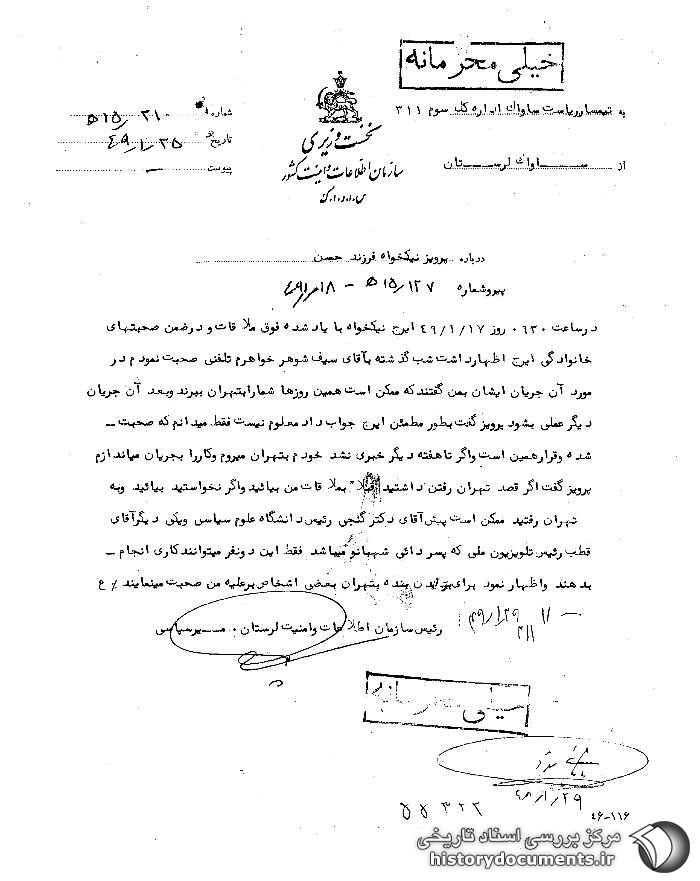 خیلی محرمانه
به تیمسار ریاست ساواک اداره کل سوم ۳۱۱
از ساواک لرستان
نخست وزیری
سازمان اطلاعات و امنیت کشور
س.ا.و.ا.ک
شماره ۲۱۰/ه۱۵
تاریخ ۴۹/۱/۲۵
پیوست —
درباره پرویز نیکخواه فرزند حسن
پیرو شماره ۱۲۷/ه۱۵ - ۴۹/۱/۱۸
در ساعت ۰۶۳۰ روز ۴۹/۱/۱۷ ایرج نیکخواه با یاد شده فوق ملاقات و در ضمن صحبتهای
خانوادگی ایرج اظهار داشت شب گذشته با آقای سیف شوهر خواهرم تلفنی صحبت نمودم در
مورد آن جریان ایشان بمن گفتند که ممکن است همین روزها شما را بتهران ببرند و بعد آن جریان
دیگر عملی بشود پرویز گفت بطور مطمئن ایرج جواب داد معلوم نیست فقط میدانم که صحبت ــ
شده و قرار همین است و اگر تا هفته دیگر خبری نشد خودم بتهران میروم و کار را بجریان میاندازم
پرویز گفت اگر قصد تهران رفتن داشتید قبلا" بملاقات من بیائید و اگر نخواستید بیائید و به
تهران رفتید ممکن است پیش آقای دکتر گنجی رئیس دانشگاه علوم سیاسی و یکی دیگر آقای
قطب رئیس تلویزیون ملی که پسر دائی شهبانو میباشد فقط این دو نفر میتوانند کاری انجام ــ
بدهند و اظهار نمود برای بردن بنده بتهران بعضی اشخاص بر علیه من صحبت مینمایند ٪ ع
رئیس سازمان اطلاعات و امنیت لرستان ۰ مــیر سپاسی
۴۹/۱/۲۹
خیلی محرمانه
۴۹/۱/۲۹
۵۵۳۲۲
۴۶-۱۱۶
مرکز بررسی اسناد تاریخی
historydocuments.ir